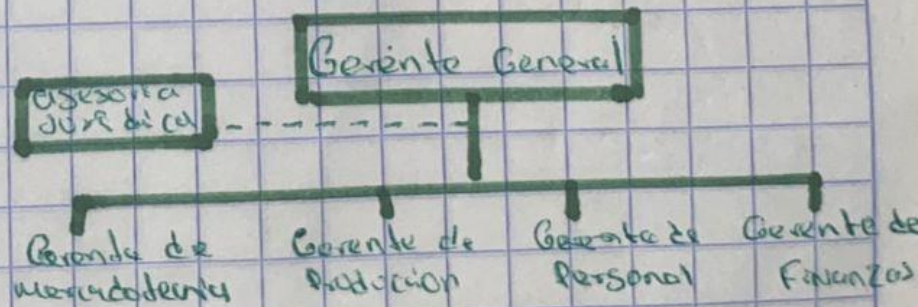 Gerente General
asesoria
Jurídica
Gerente de
mercadotecnia
Gerente de
Producción
Gerente de
Personal
Gerente de
Finanzas